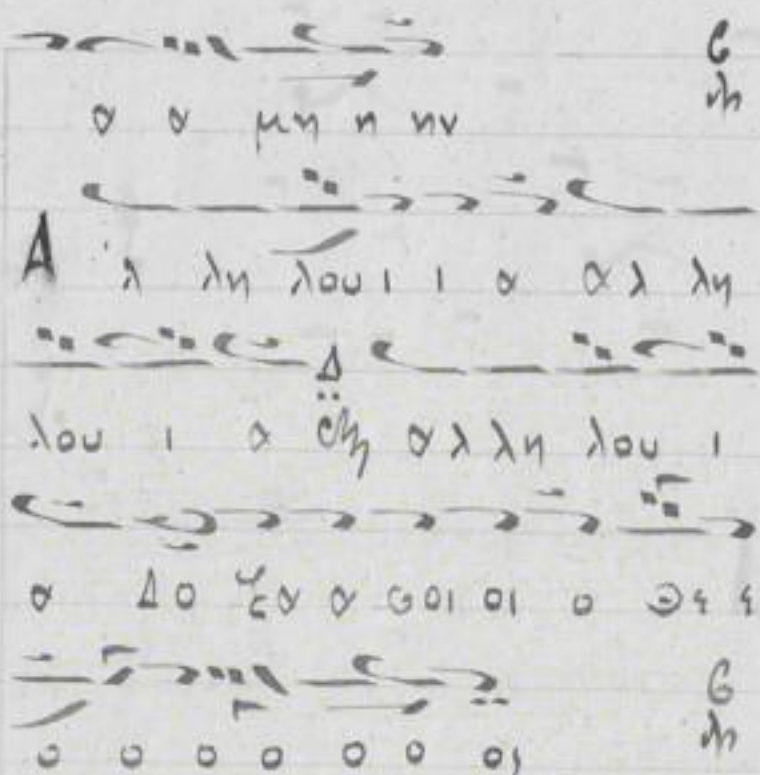 α α μη η ην
Α λ λη λου ι ι α αλ λη
λου ι α αλ λη λου ι
α Δο ξα α σοι οι ο Θε ε
ο ο ο ο ο ο ος